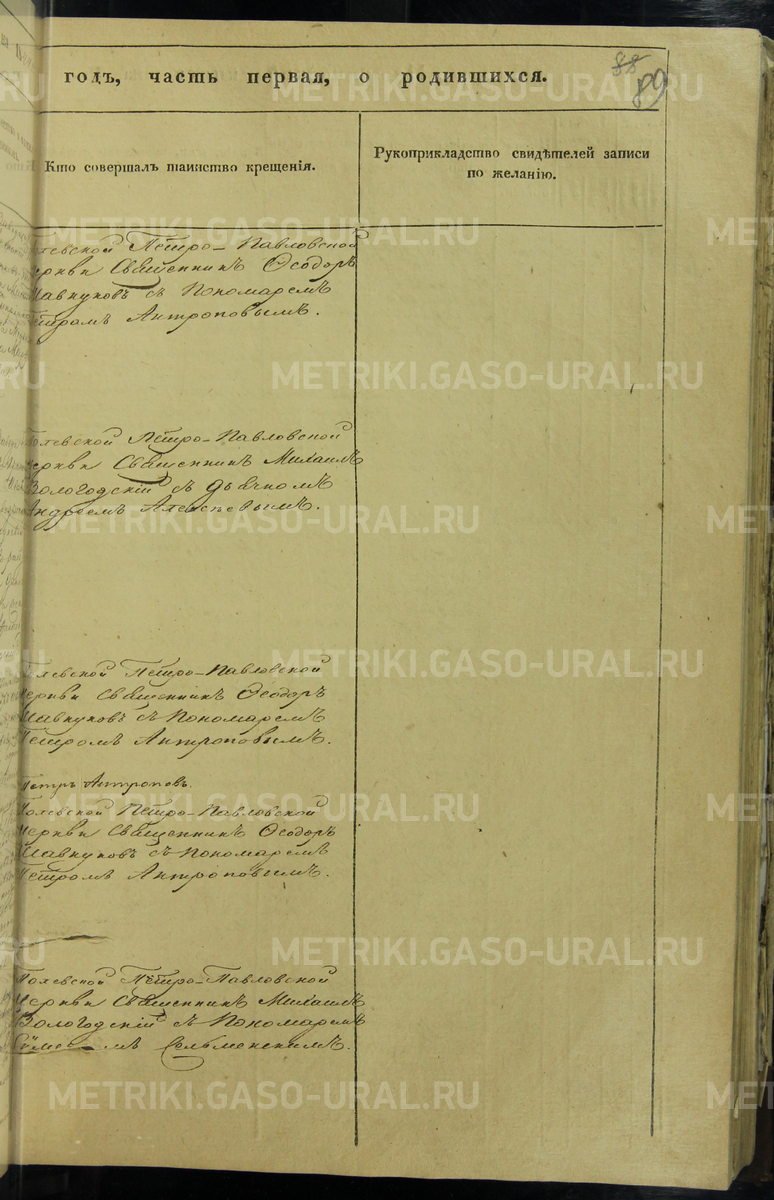 годъ, часть первая, о родившихся.
88
89
Кто совершалъ таинство крещенія.
Рукоприкладство свидѣтелей записи
по желанію.
Полевской Петро-Павловской
церкви Священникъ Ѳеодоръ
Шавкуновъ съ Пономаремъ
Петромъ Антроповымъ.
Полевской Петро-Павловской
церкви Священникъ Михаилъ
Вологодскій съ дьячкомъ
Андреемъ Алексѣевымъ.
Полевской Петро-Павловской
церкви Священникъ Ѳеодоръ
Шавкуновъ съ Пономаремъ
Петромъ Антроповымъ.
Петръ Антроповъ.
Полевской Петро-Павловской
церкви Священникъ Ѳеодоръ
Шавкуновъ съ Пономаремъ
Петромъ Антроповымъ.
Полевской Петро-Павловской
церкви Священникъ Михаилъ
Вологодскій съ Пономаремъ
METRIKI.GASO-URAL.RU